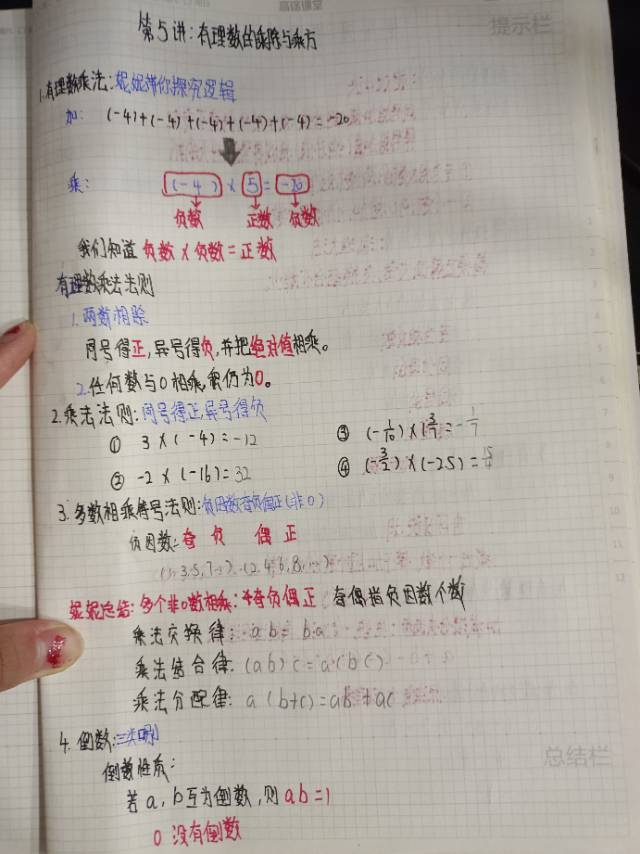 高途课堂
提示栏
第5讲:有理数的乘除与乘方
1.有理数乘法:妮妮带你探究逻辑
加: (-4)+(-4)+(-4)+(-4)+(-4)=-20
乘: (-4)×5=-20
负数 正数 负数
我们知道 负数×负数=正数
有理数乘法法则
1.两数相乘
同号得正,异号得负,并把绝对值相乘。
2.任何数与0相乘,积仍为0。
2.乘法法则:同号得正,异号得负
① 3×(-4)=-12
③
② -2×(-16)=32
④ (-3/2)×(-2.5)=15/4
3.多数相乘符号法则:负因数奇负偶正(非0)
负因数:奇 负 偶 正
妮妮总结:多个非0数相乘:奇负偶正 奇偶指负因数个数
乘法交换律: ab=ba
乘法结合律: (ab)c=a(bc)
乘法分配律: a(b+c)=ab+ac
4.倒数:
倒数性质:
若a,b互为倒数,则ab=1
0没有倒数
总结栏